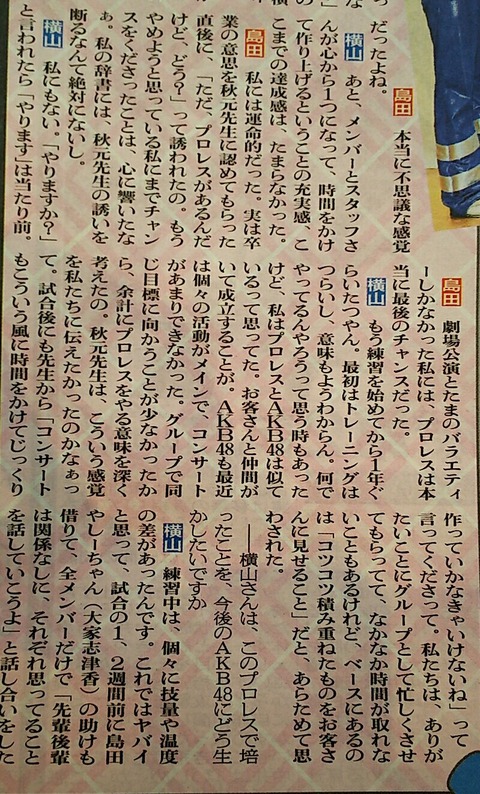 っ だったよね。
島田 本当に不思議な感覚
な
横山 あと、メンバーとスタッフさ
んが心から1つになって、時間をかけ
て作り上げるということの充実感、こ
こまでの達成感は、たまらなかった。
島田 私には運命的だった。実は卒
業の意思を秋元先生に認めてもらった
直後に、「ただ、プロレスがあるんだ
けど、どう?」って誘われたの。もう
やめようと思っている私にまでチャン
スをくださったことは、心に響いたな
ぁ。私の辞書には、秋元先生の誘いを
断るなんて絶対にないし。
横山 私にもない。「やりますか?」
と言われたら「やります」は当たり前。
島田 劇場公演とたまのバラエティ
ーしかなかった私には、プロレスは本
当に最後のチャンスだった。
横山 もう練習を始めてから1年ぐ
らいたつやん。最初はトレーニングは
つらいし、意味もようわからん。何で
やってるんやろうって思う時もあった
けど、私はプロレスとAKB48は似て
いるって思ってた。お客さんと仲間が
いて成立することが。AKB48も最近
は個々の活動がメインで、コンサート
があまりできなかった。グループで同
じ目標に向かうことが少なかったか
ら、余計にプロレスをやる意味を深く
考えたの。秋元先生は、こういう感覚
を私たちに伝えたかったのかなぁっ
て。試合後にも先生から「コンサート
もこういう風に時間をかけてじっくり
作っていかなきゃいけないね」って
言ってくださって。私たちは、ありが
たいことにグループとして忙しくさせ
てもらってて、なかなか時間が取れな
いこともあるけれど、ベースにあるの
は「コツコツ積み重ねたものをお客さ
んに見せること」だと、あらためて思
わされた。
――横山さんは、このプロレスで培
ったことを、今後のAKB48にどう生
かしたいですか
横山 練習中は、個々に技量や温度
の差があったんです。これではヤバイ
と思って、試合の1、2週間前に島田
やしーちゃん(大家志津香)の助けも
借りて、全メンバーだけで「先輩後輩
は関係なしに、それぞれ思ってること
を話していこうよ」と話し合いをした